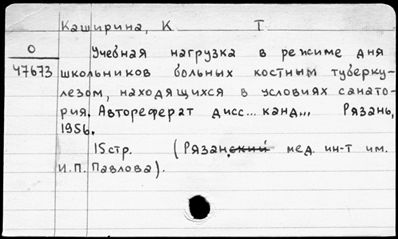 Каширина, К Т
О
47673
Учебная нагрузка в режиме дня
школьников больных костным туберку-
лезом, находящихся в условиях санато-
рия. Автореферат дисс... канд,,, Рязань,
1956.
15стр. (Рязанский мед. ин-т им.
И.П. Павлова).